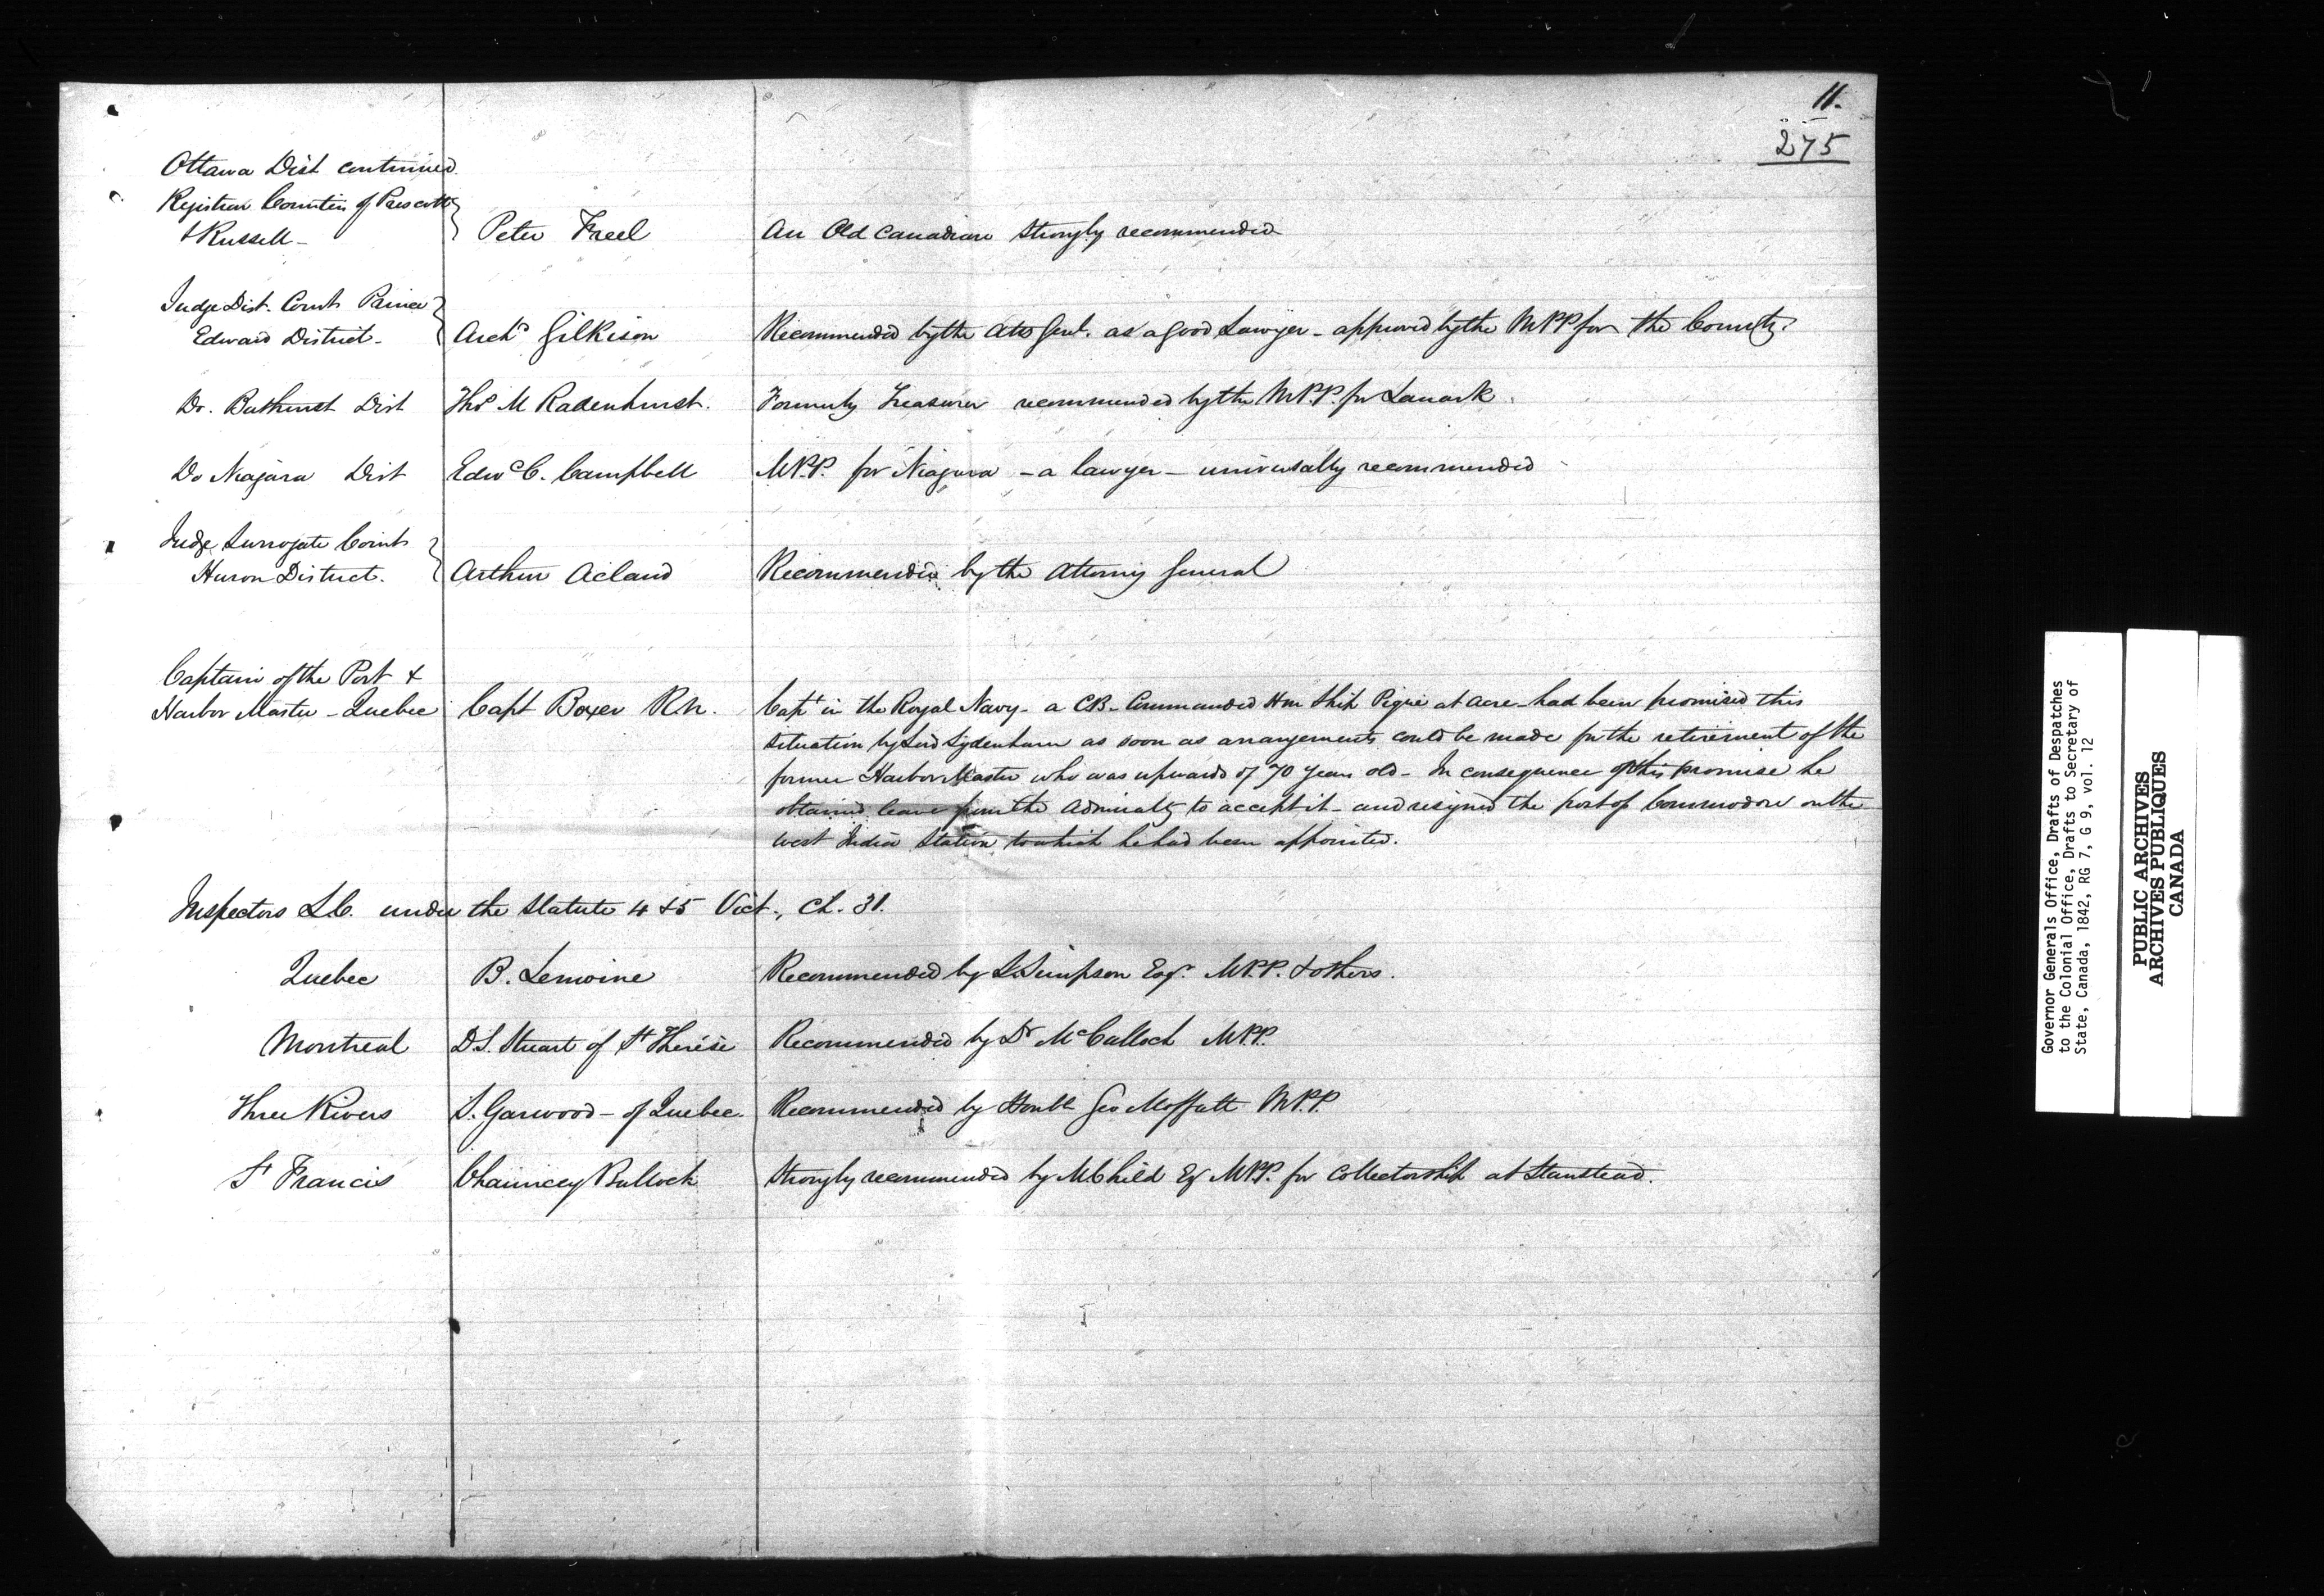 11.
275
Ottawa Dist continued
Registrar Counties of Prescott
& Russell -
Peter Freel
An Old Canadian strongly recommended
Judge Dist. Court Prince
Edward District -
Archd Gilkison
Recommended by the Atto Genl. as a good Lawyer - approved by the MPP for the County.
Do. Bathurst Dist
Thos M Radenhurst.
Formerly Treasurer recommended by the M.P.P. for Lanark.
Do Niagara Dist
Edwd C. Campbell
M.P.P. for Niagara - a lawyer - universally recommended
Judge Surrogate Court
Huron District.
Arthur Acland
Recommended by the Attorney General
Captain of the Port &
Harbor Master - Quebec
Capt Boxer RN.
Capt in the Royal Navy - a CB - Commanded Hm Ship Pique at Acre - had been promised this
situation by Lord Sydenham as soon as arrangements could be made for the retirement of the
former Harbor Master who was upwards of 70 years old - In consequence of this promise he
obtained leave from the Admiralty to accept it - and resigned the post of Commodore on the
West India Station to which he had been appointed.
Inspectors L.C. under the Statute 4 & 5 Vict., Ch. 31.
Quebec
B. Lemoine
Recommended by Simpson Esqr. M.P.P. & others.
Montreal
D.S. Stuart of St Therése
Recommended by Dr McCulloch M.P.P.
Three Rivers
S. Garwood - of Quebec.
Recommended by Honble Geo Moffatt M.P.P.
St Francis
Chauncey Bullock
Strongly recommended by M Child Eq M.P.P. for Collectorship at Stanstead.
Governor Generals Office, Drafts of Despatches
to the Colonial Office, Drafts to Secretary of
State, Canada, 1842, RG 7, G 9, vol. 12
PUBLIC ARCHIVES
ARCHIVES PUBLIQUES
CANADA